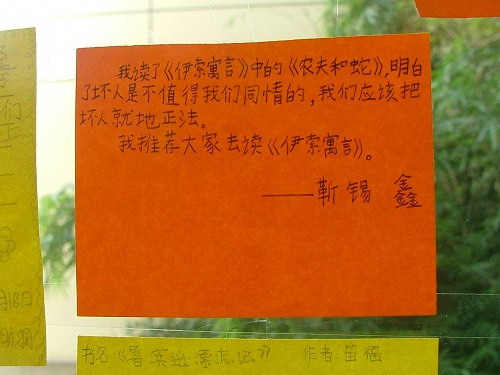 我读了《伊索寓言》中的《农夫和蛇》,明白
了坏人是不值得我们同情的,我们应该把
坏人就地正法。
我推荐大家去读《伊索寓言》。
——靳锡鑫
书名:《鲁宾逊漂流记》 作者:笛福
月18日